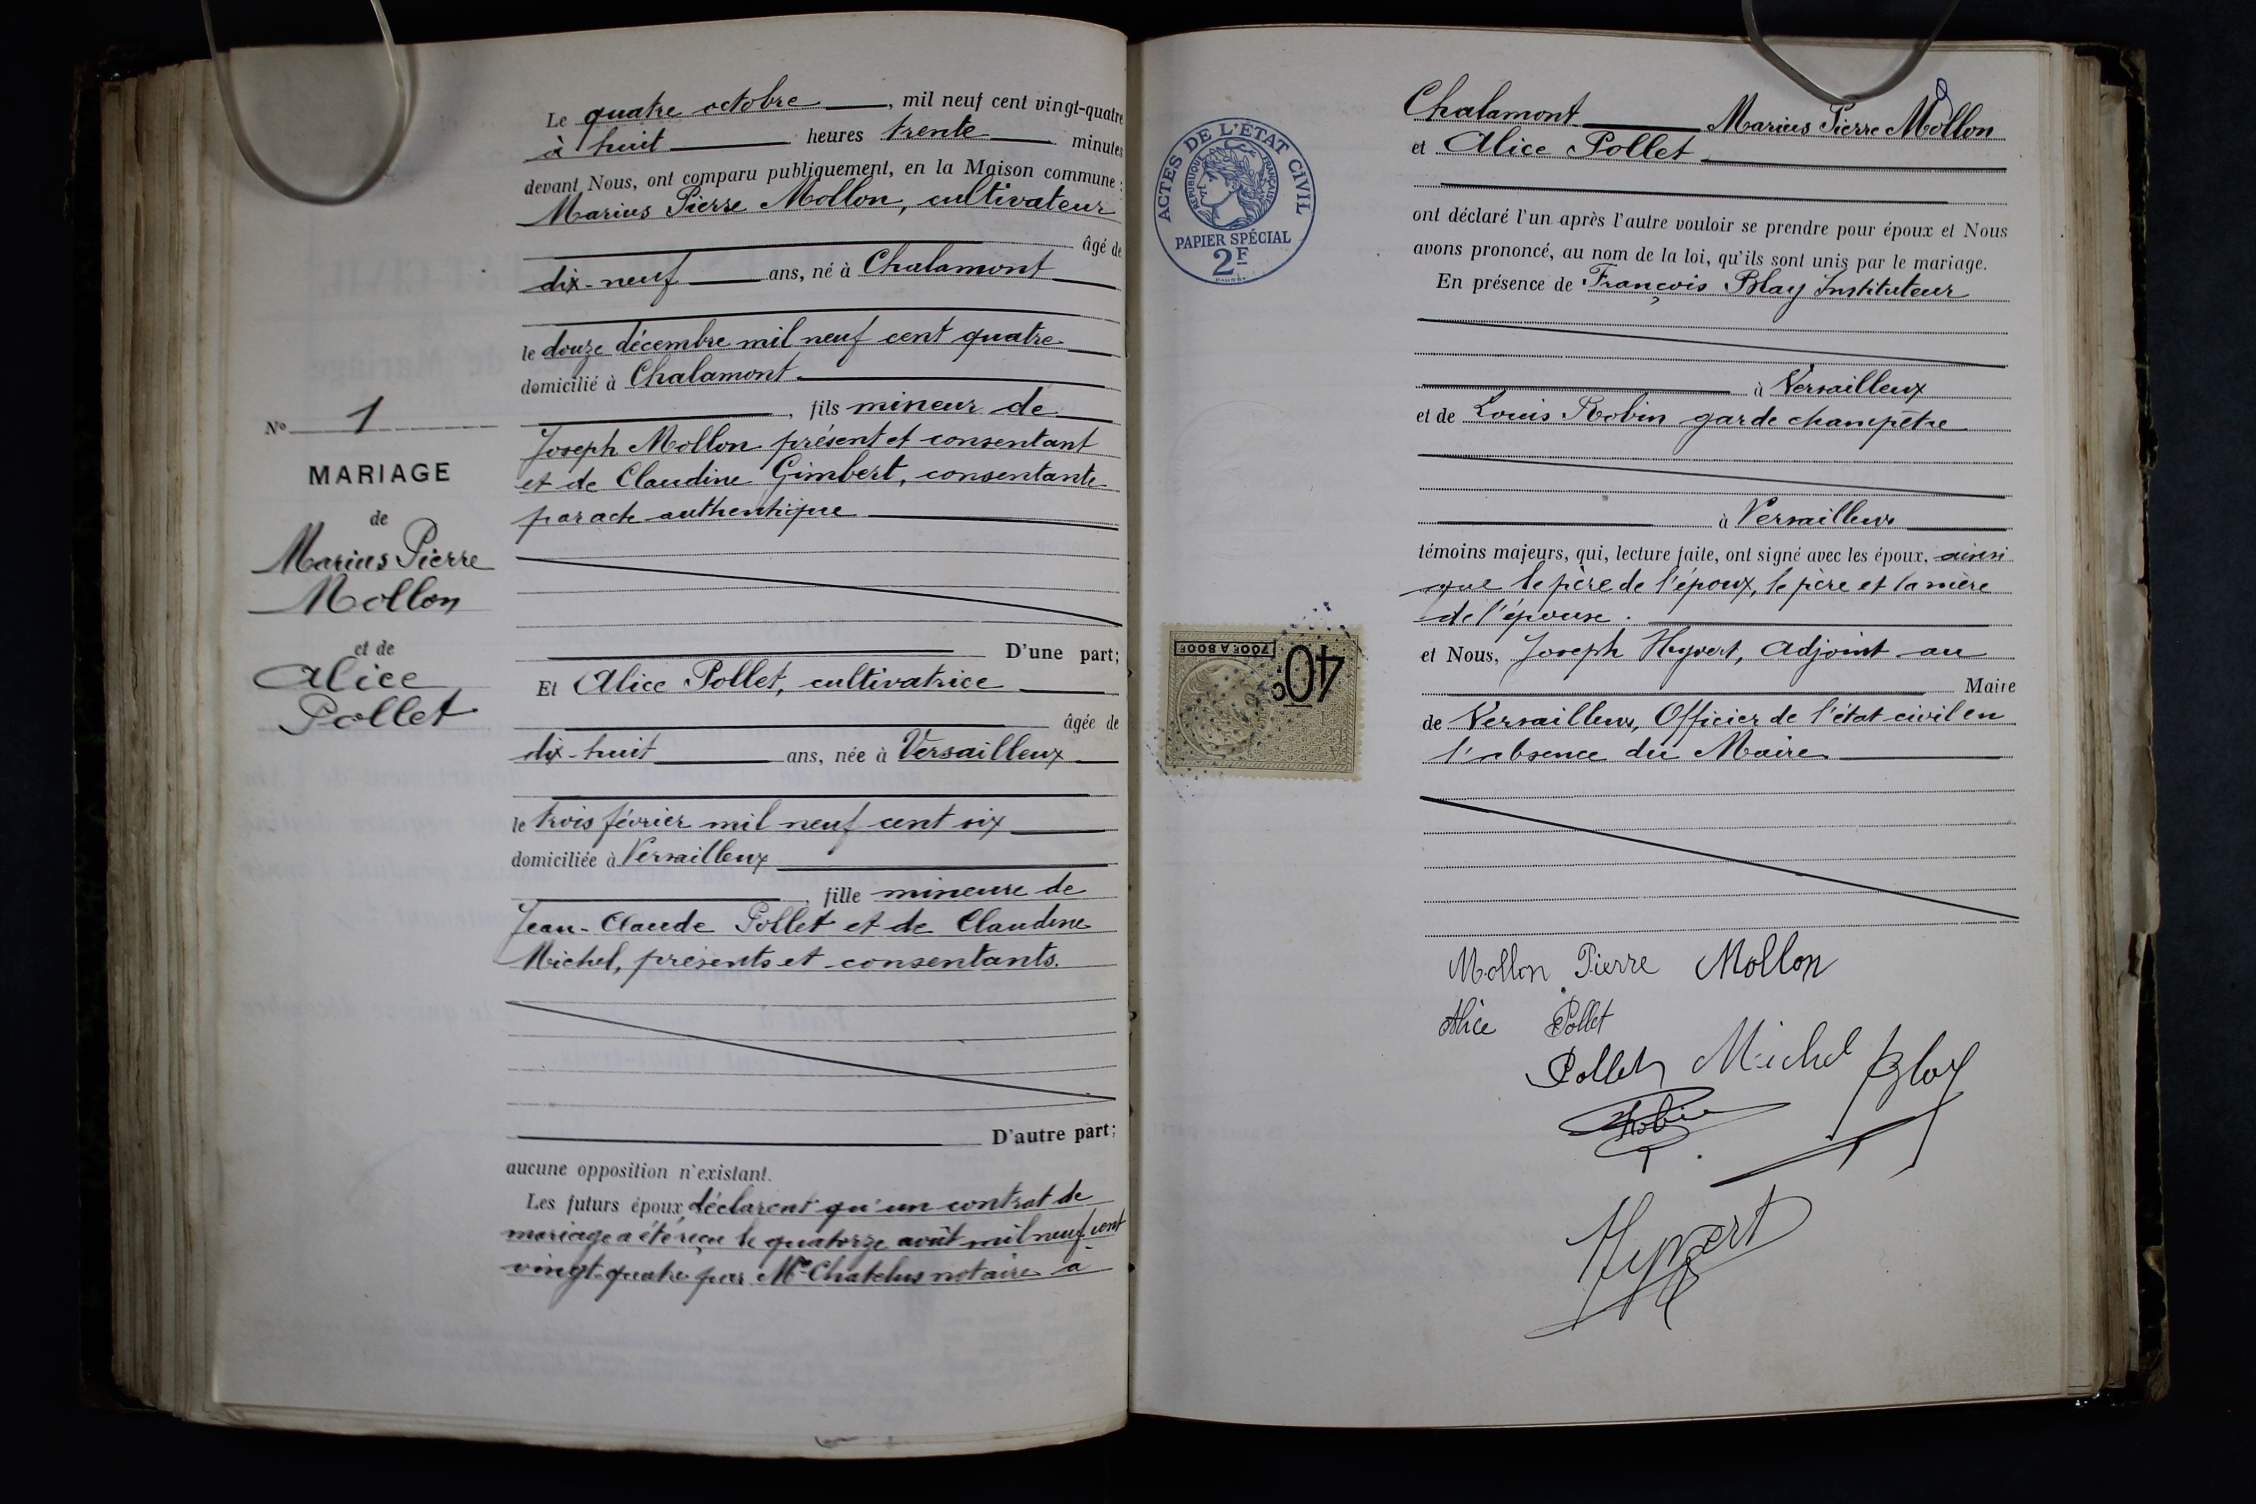 Le quatre octobre, mil neuf cent vingt-quatre
à huit heures trente minutes
devant Nous, ont comparu publiquement, en la Maison commune :
Marius Pierre Mollon, cultivateur
âgé de
dix-neuf ans, né à Chalamont
le douze décembre mil neuf cent quatre
domicilié à Chalamont
, fils mineur de
Joseph Mollon présent et consentant
et de Claudine Gimbert, consentante
par acte authentique
D'une part;
Et Alice Pollet, cultivatrice
âgée de
dix-huit ans, née à Versailleux
le trois février mil neuf cent six
domiciliée à Versailleux
, fille mineure de
Jean-Claude Pollet et de Claudine
Michel, présents et consentants.
D'autre part;
aucune opposition n'existant.
Les futurs époux déclarent qu'un contrat de
mariage a été reçu le quatorze août mil neuf cent
vingt-quatre par Me Chatelus notaire à
No 1
MARIAGE
de
Marius Pierre
Mollon
et de
Alice
Pollet
Chalamont Marius Pierre Mollon
et Alice Pollet
ont déclaré l'un après l'autre vouloir se prendre pour époux et Nous
avons prononcé, au nom de la loi, qu'ils sont unis par le mariage.
En présence de François Blay Instituteur
à Versailleux
et de Louis Robin garde champêtre
à Versailleux
témoins majeurs, qui, lecture faite, ont signé avec les époux, ainsi
que le père de l'époux, le père et la mère
de l'épouse.
et Nous, Joseph Hyvert, Adjoint au
Maire
de Versailleux, Officier de l'état-civil en
l'absence du Maire
Mollon Pierre Mollon
Alice Pollet
Pollet Michel Blay
Robin
Hyvert
ACTES DE L'ETAT CIVIL
REPUBLIQUE FRANÇAISE
PAPIER SPÉCIAL
2F
700F A 800F
40c